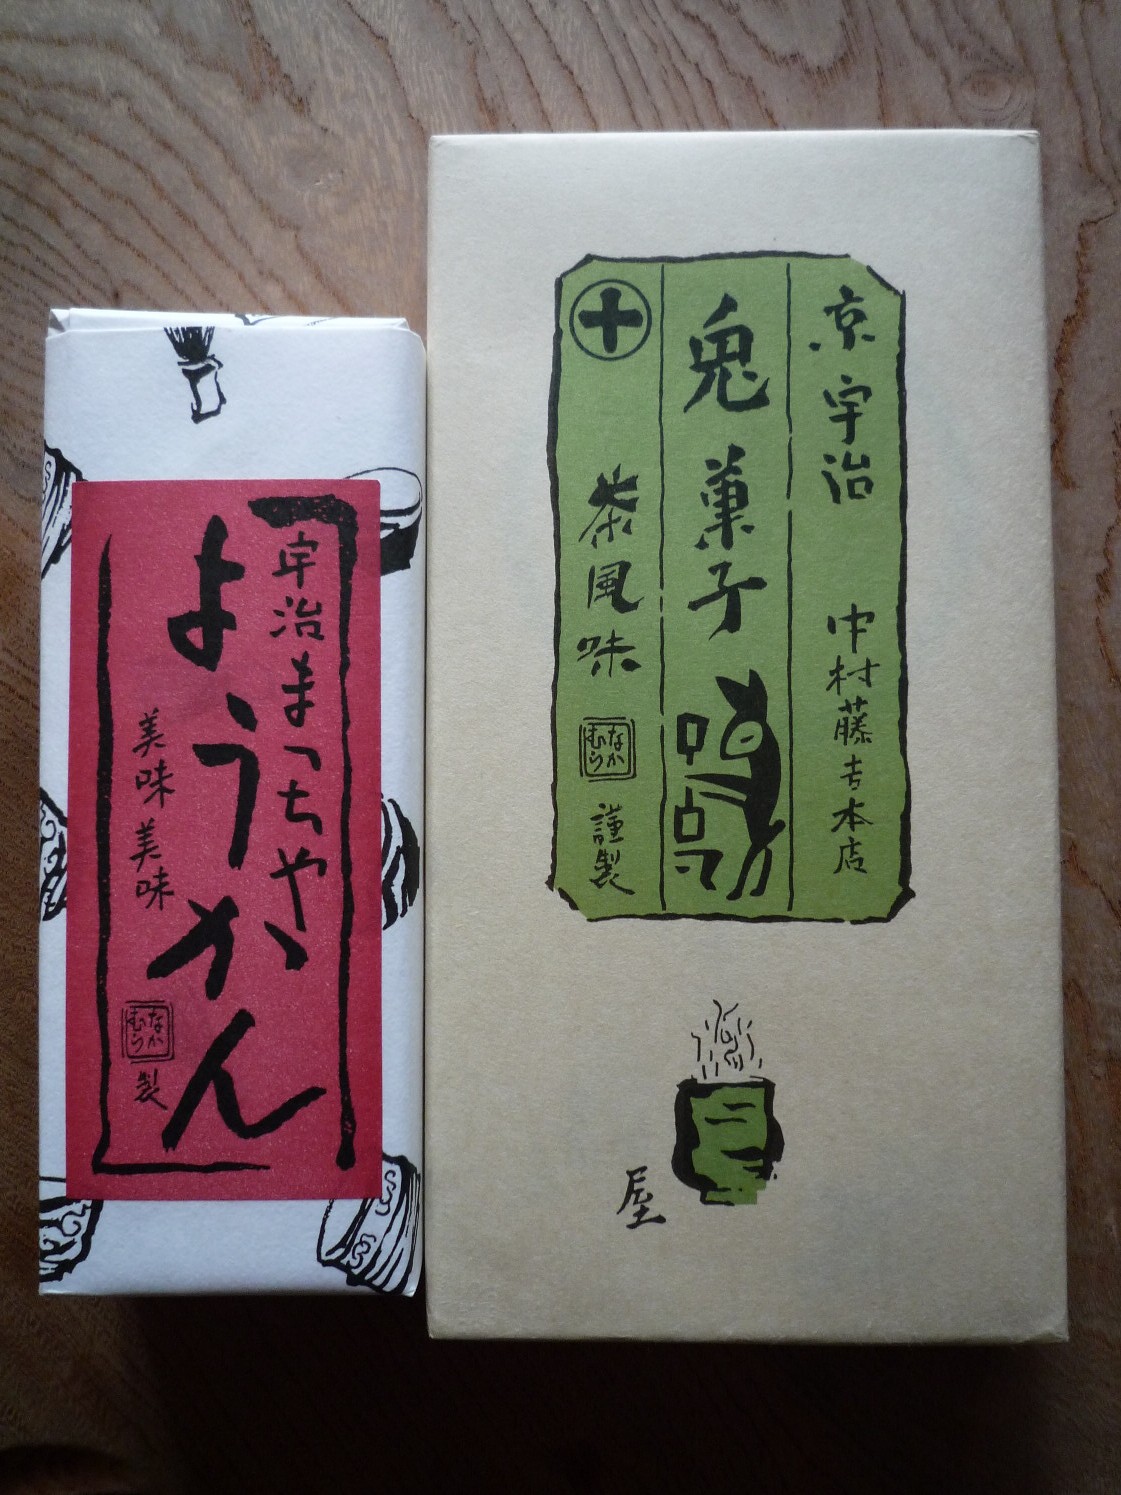 宇治まっちゃ
ようかん
美味美味
なか
むら
製
京宇治 中村藤吉本店
鬼菓子
茶風味
なか
むら
謹製
屋